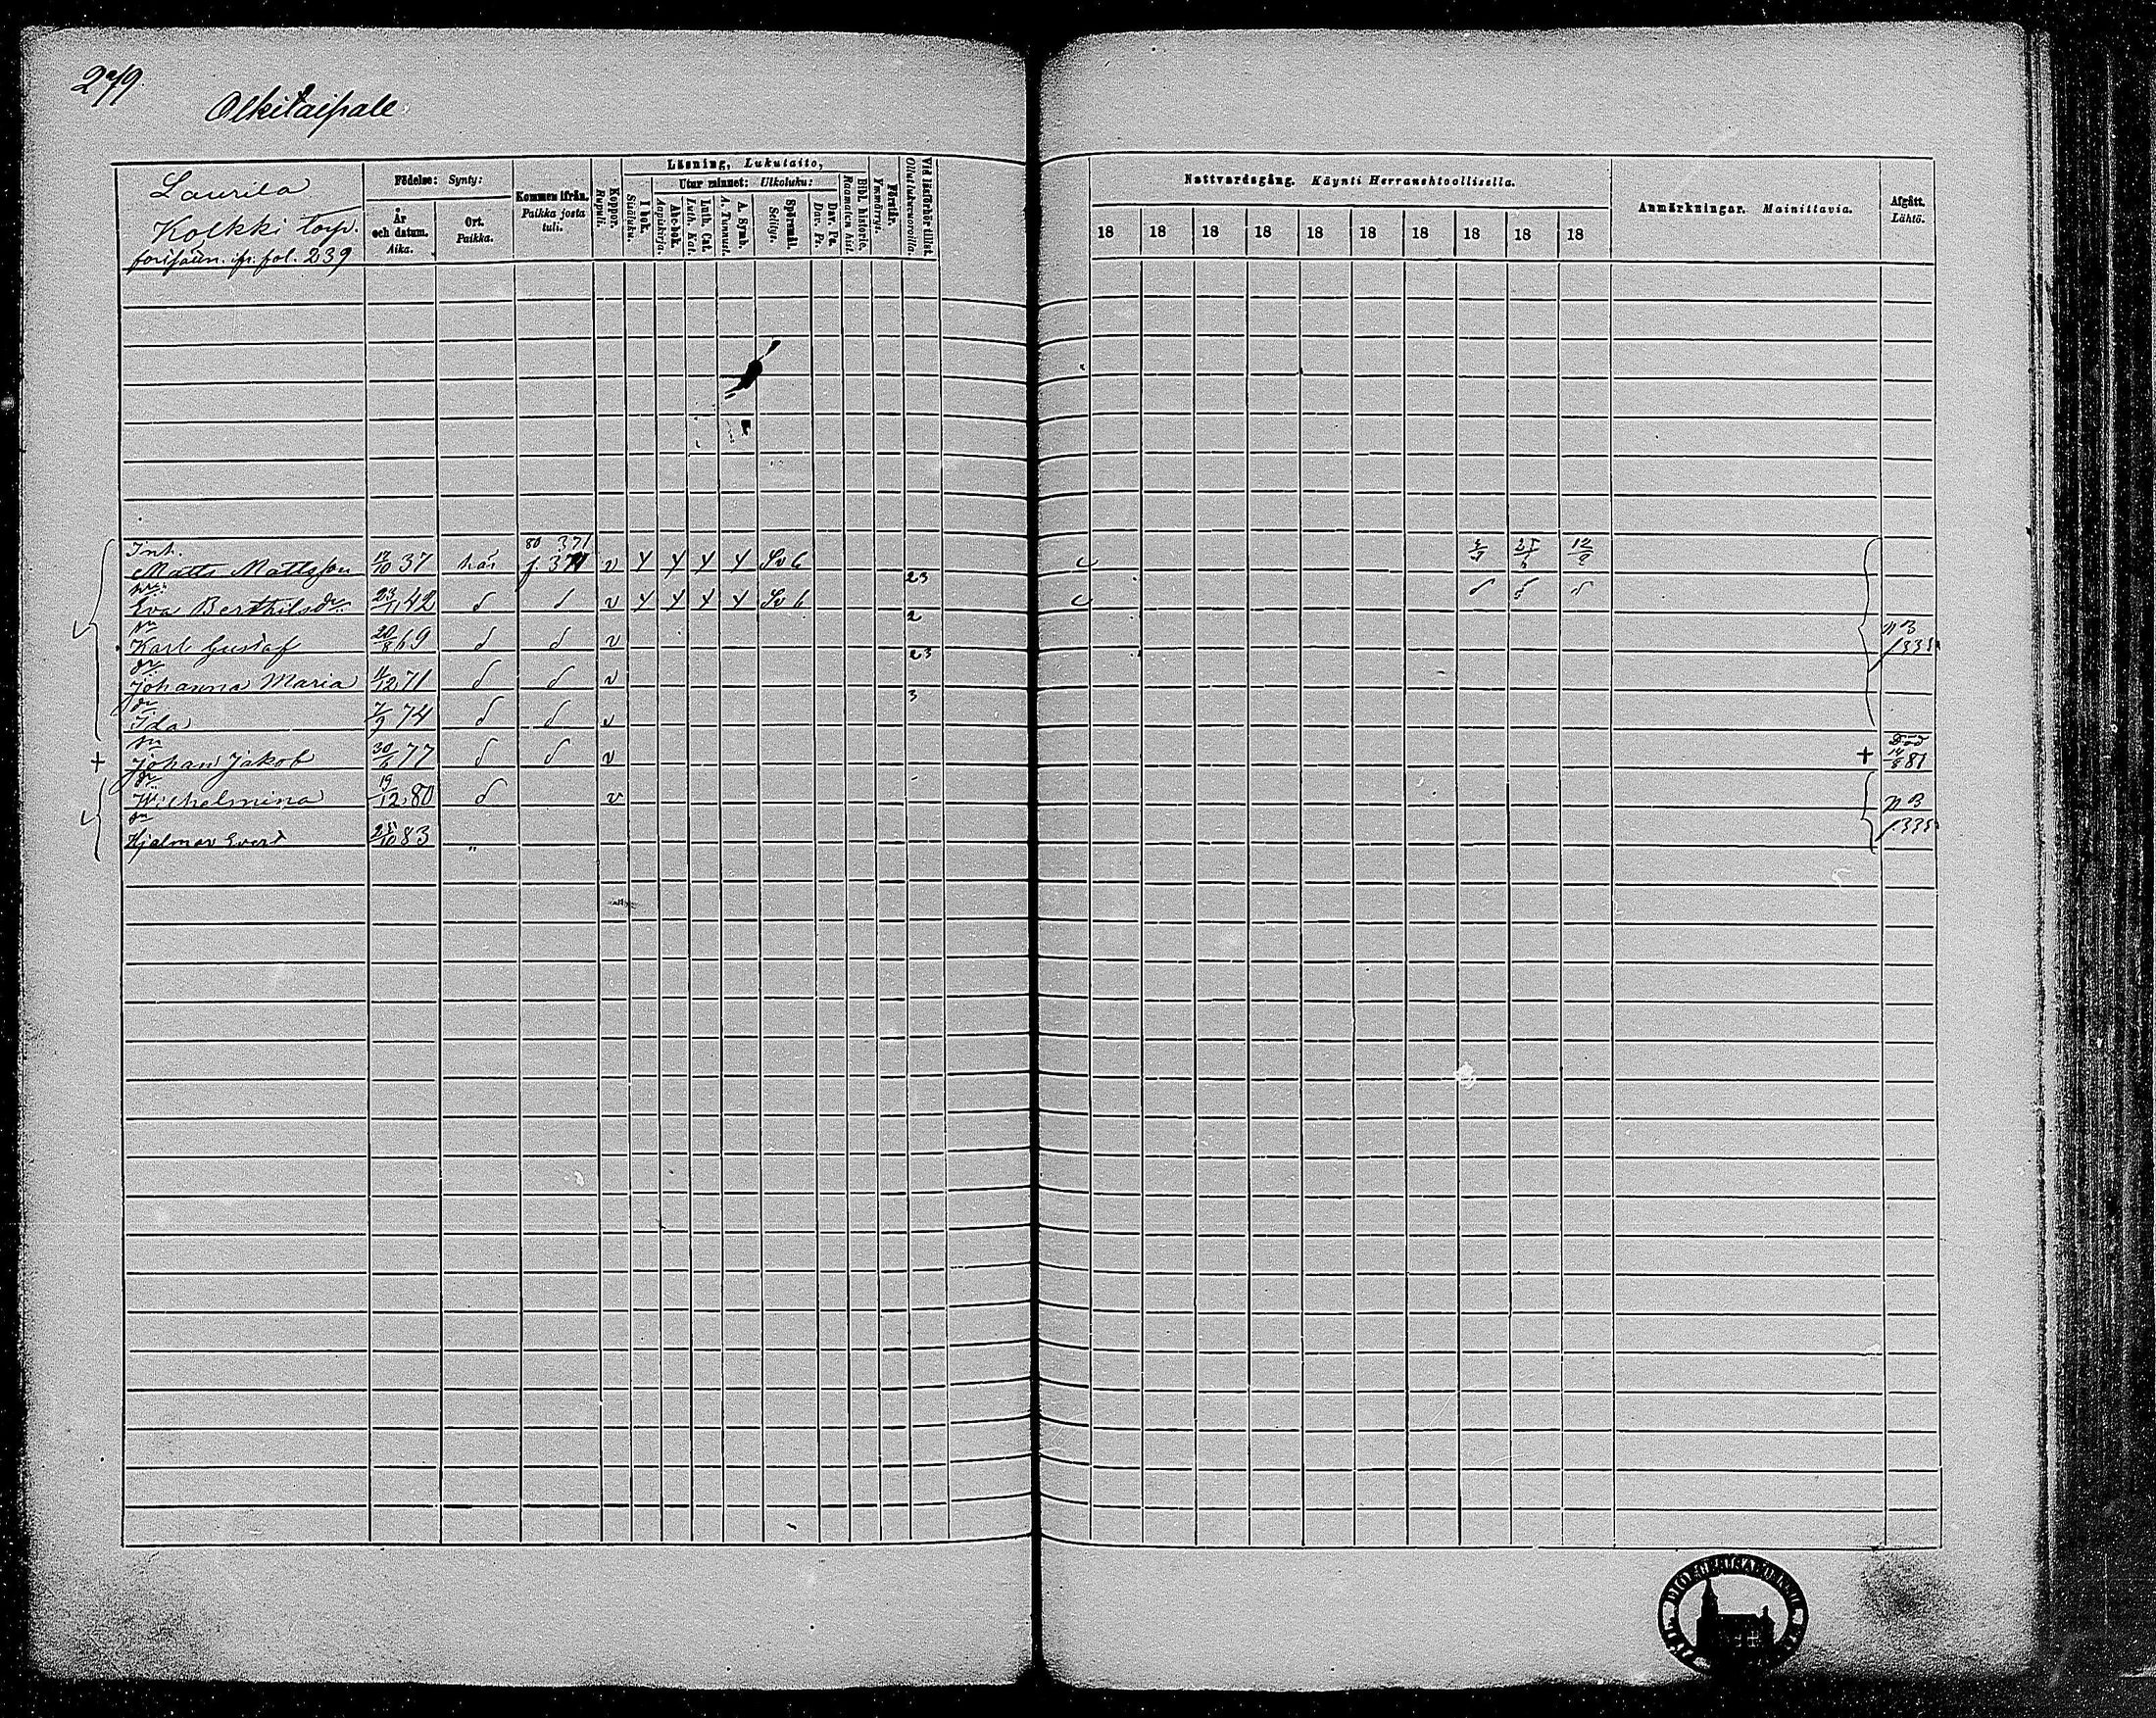 279.
Olkitaipale
Laurila
Kolkki torp.
forts. fr. fol. 239
Födelse: Synty:
År och datum. Aika.
Ort. Paikka.
Kommen ifrån. Paikka josta tuli.
Koppor. Rupuli.
Läsning, Lukutaito,
I bok. Sisäluku.
Utur minnet: Ulkoluku:
Abc-bok. Aapiskirja.
Luth. Cat. Luth. Kat.
A. Symb. A. Tunnust.
Spörsmål. Selityt.
Dav. Ps. Dav. Ps.
Bibl. historie. Raamatun hist.
Förstår. Ymmärrys.
Vid läsförhör tillst. Ollut lukuvuoroilla.
Nattvardsgång. Käynti Herranehtoollisella.
18 18 18 18 18 18 18 18 18 18
Anmärkningar. Mainittavia.
Afgått. Lähtö.
Inh. 80 371
Matts Mattsson 12/10 37 här f 371 v Y Y Y Y Sv 6
23
Eva Berthilsdr 23/11 42 d d v Y Y Y Y Sv 6 d d d
sn 2
Karl Gustaf 20/8 69 d d v N B f. 335
dr 23
Johanna Maria 4/12 71 d d v
dr 3
Ida 7/9 74 d d v
sn Död
+ Johan Jakob 30/6 77 d d v + 14/8 81
dr
Wilhelmina 19/12 80 d v N B
sn
Hjalmar Evert 25/10 83 " f. 335